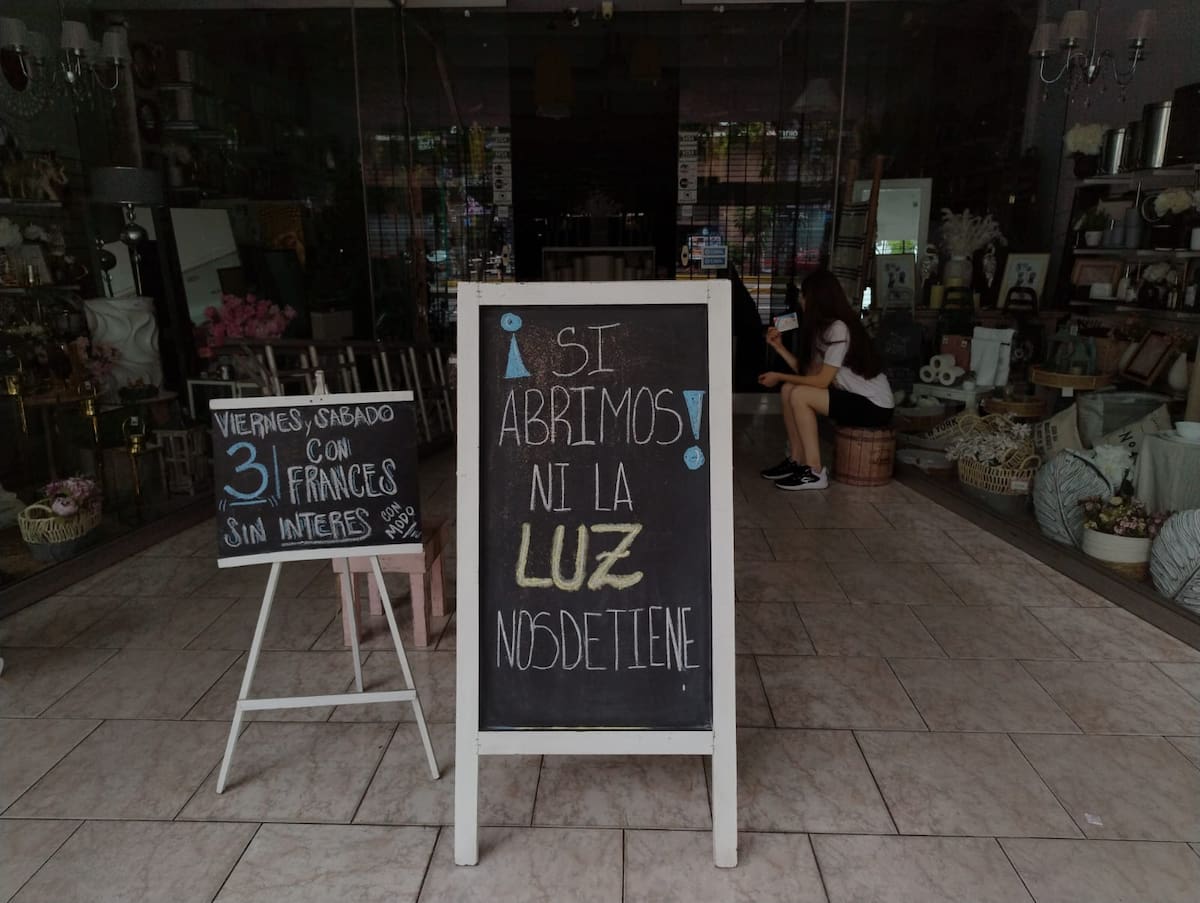 VIERNES y SABADO
3 CON
FRANCES
SIN INTERES CON
MODO
¡SI
ABRIMOS!
NI LA
LUZ
NOS DETIENE
NEW YORK